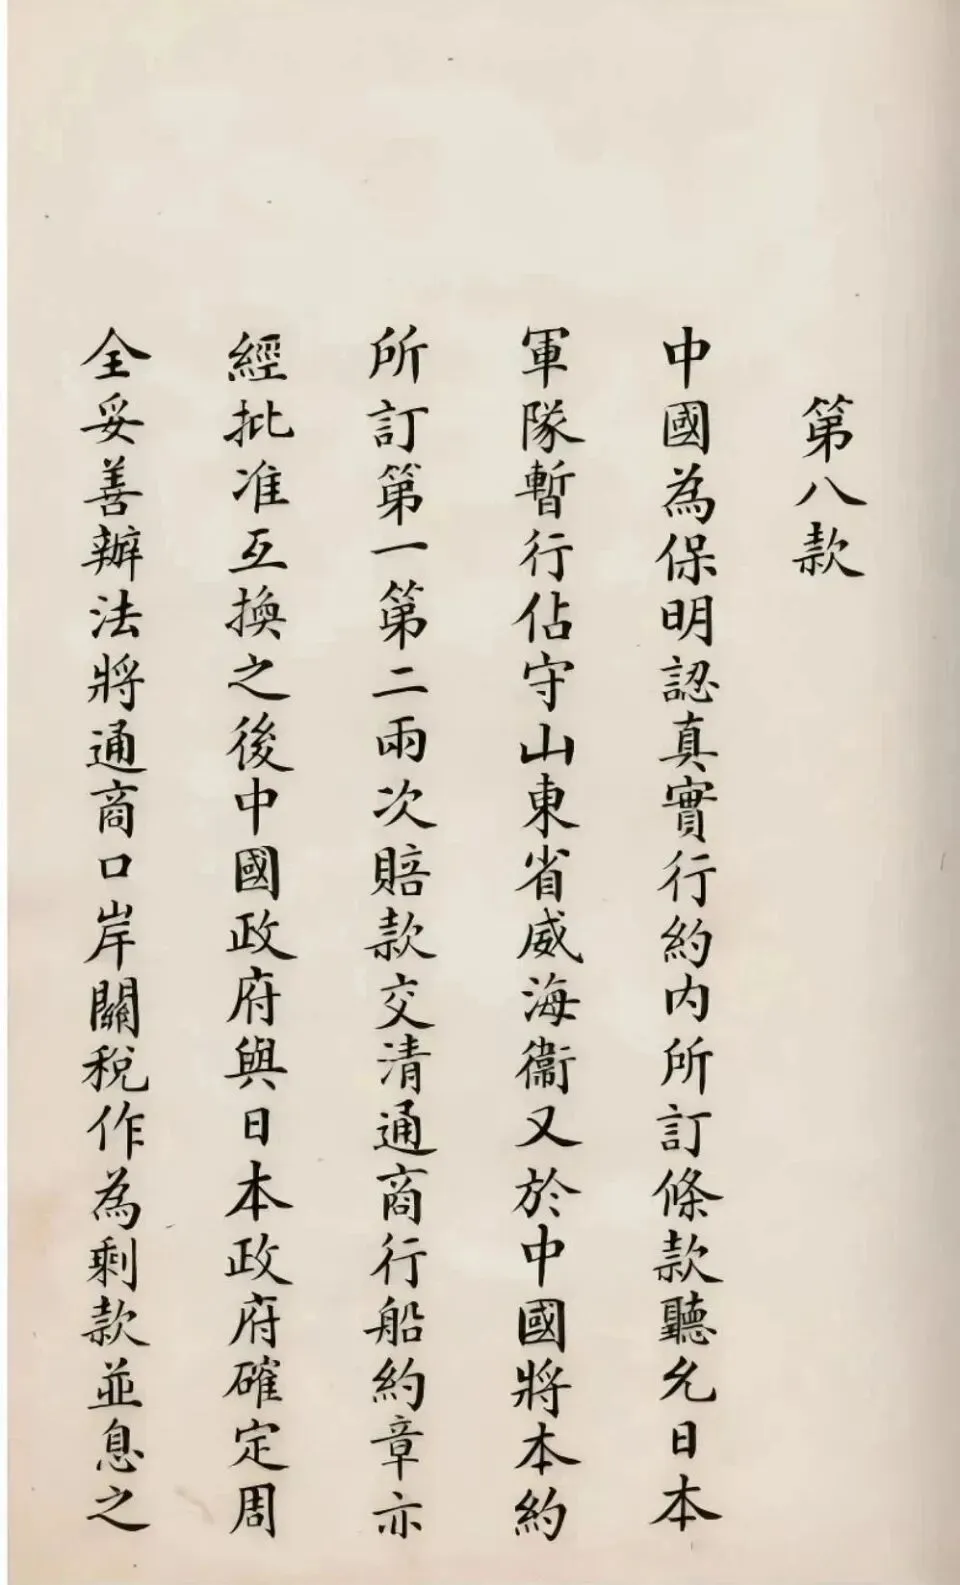 第八款
中國為保明認真實行約内所訂條款聽允日本
軍隊暫行佔守山東省威海衞又於中國將本約
所訂第一第二兩次賠款交清通商行船約章亦
經批准互換之後中國政府與日本政府確定周
全妥善辦法將通商口岸關稅作為剩款並息之